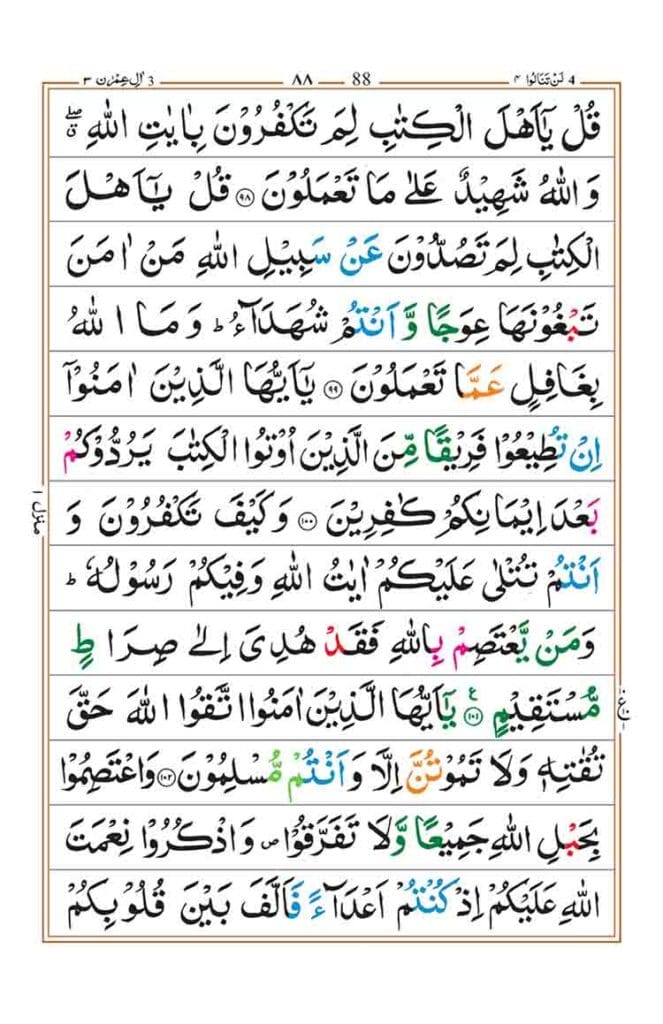 3 اٰل عمرٰن ٣ ٨٨ 88 4 لن تنالوا ٤
قُلْ يٰۤاَهْلَ الْكِتٰبِ لِمَ تَكْفُرُوْنَ بِاٰيٰتِ اللّٰهِ ۖۗ
وَاللّٰهُ شَهِيْدٌ عَلٰى مَا تَعْمَلُوْنَ ۝٩٨ قُلْ يٰۤاَهْلَ
الْكِتٰبِ لِمَ تَصُدُّوْنَ عَنْ سَبِيْلِ اللّٰهِ مَنْ اٰمَنَ
تَبْغُوْنَهَا عِوَجًا وَّاَنْتُمْ شُهَدَآءُ ؕ وَمَا اللّٰهُ
بِغَافِلٍ عَمَّا تَعْمَلُوْنَ ۝٩٩ يٰۤاَيُّهَا الَّذِيْنَ اٰمَنُوْۤا
اِنْ تُطِيْعُوْا فَرِيْقًا مِّنَ الَّذِيْنَ اُوْتُوا الْكِتٰبَ يَرُدُّوْكُمْ
بَعْدَ اِيْمَانِكُمْ كٰفِرِيْنَ ۝١٠٠ وَكَيْفَ تَكْفُرُوْنَ وَ
اَنْتُمْ تُتْلٰى عَلَيْكُمْ اٰيٰتُ اللّٰهِ وَفِيْكُمْ رَسُوْلُهٗ ؕ
وَمَنْ يَّعْتَصِمْ بِاللّٰهِ فَقَدْ هُدِىَ اِلٰى صِرَاطٍ
مُّسْتَقِيْمٍ ۝١٠١ ع يٰۤاَيُّهَا الَّذِيْنَ اٰمَنُوا اتَّقُوا اللّٰهَ حَقَّ
تُقٰتِهٖ وَلَا تَمُوْتُنَّ اِلَّا وَاَنْتُمْ مُّسْلِمُوْنَ ۝١٠٢ وَاعْتَصِمُوْا
بِحَبْلِ اللّٰهِ جَمِيْعًا وَّلَا تَفَرَّقُوْا ص وَاذْكُرُوْا نِعْمَتَ
اللّٰهِ عَلَيْكُمْ اِذْ كُنْتُمْ اَعْدَآءً فَاَلَّفَ بَيْنَ قُلُوْبِكُمْ
منزل ١